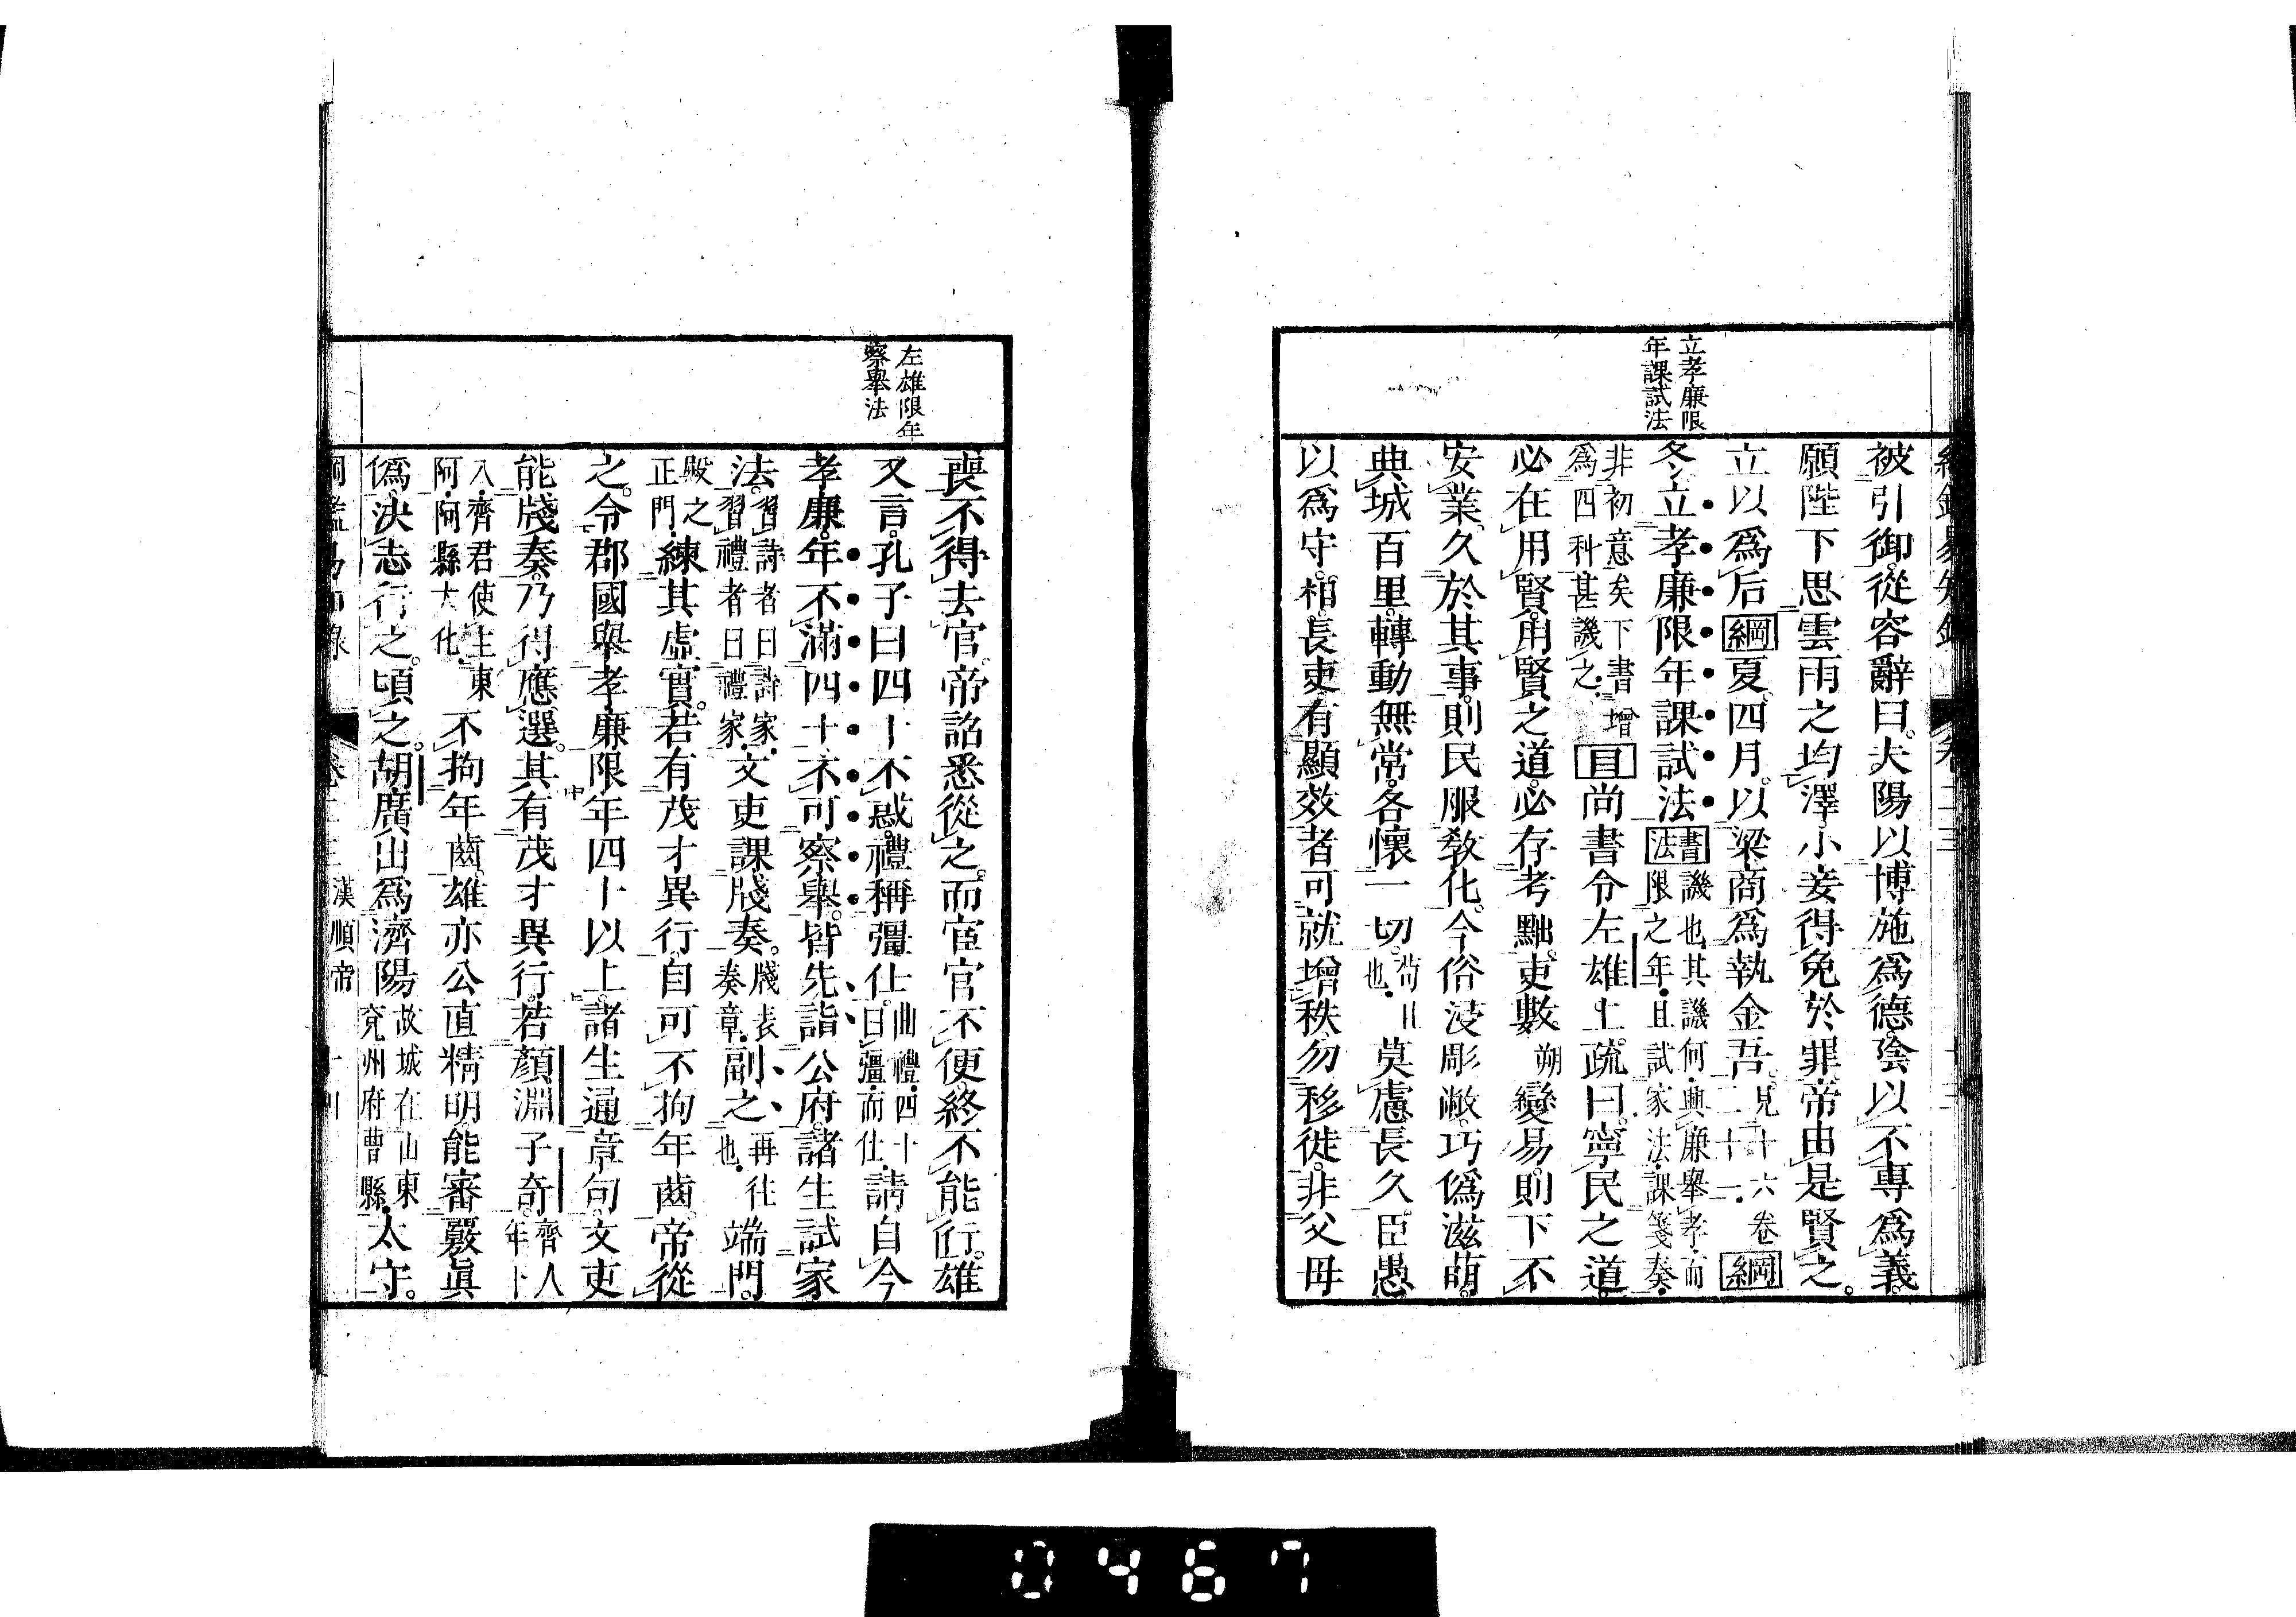 立孝廉限
年課試法
被引御。從容辭曰。夫陽以博施爲德。陰以不專爲義。
願陛下思雲雨之均澤。小妾得免於罪。帝由是賢之。
立以爲后綱夏。四月。以梁商爲執金吾。見十六卷二十一。綱
冬。立孝廉限年課試法書法譏也。其譏何。興廉舉孝。而限之年。且試家法。課箋奏。
非初意矣。下書增爲四科。甚譏之。目尚書令左雄上疏曰。寧民之道。
必在用賢。用賢之道。必存考黜。吏數朔變易。則下不
安業。久於其事。則民服教化。今俗浸彫敝。巧僞滋萌。
典城百里。轉動無常。各懷一切。苟且也。莫慮長久。臣愚
以爲守。相。長吏。有顯效者。可就增秩。勿移徙。非父母
左雄限年
察舉法
喪。不得去官。帝詔悉從之。而宦官不便。終不能行。雄
又言。孔子曰四十不惑。禮稱彊仕。曲禮。四十曰彊。而仕。請自今
孝廉。年不滿四十。不可察舉。皆先詣公府。諸生試家
法。習詩者曰詩家。習禮者曰禮家。文吏課牋奏。牋表奏章。副之再往也。端門。
殿之正門。練其虛實。若有茂才異行。自可不拘年齒。帝從
之。令郡國舉孝廉限年四十以上。諸生通章句。文吏
能牋奏。乃得應選。其有茂才異行。若顏淵子奇。齊人年十
八。齊君使主東阿。阿縣大化。不拘年齒。雄亦公直精明。能審覈眞
僞。決志行之。頃之。胡廣出爲濟陽故城在山東兗州府曹縣。太守。
漢順帝